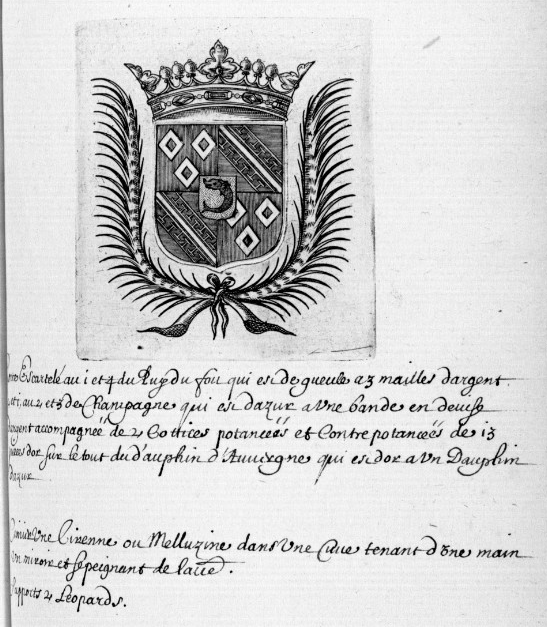 Escartelé au i et 4 du Puy du fou qui est de gueule a 3 mailles dargent
au 2 et 3 de Champagne qui est dazur a Vne bande en deuise
dargent accompagnée de 2 Cottices potancéés et Contrepotancéés de i3
pieces dor sur le tout du d'auphin d'Auuergne qui est dor a Vn Dauphin
dazur
Cimier Vne Sirenne ou Melluzine dans Vne Cuue tenant d'vne main
son miroir et sepeignant de lautre.
supports 2 Leopards.